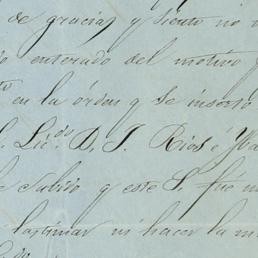 de gracias y siento no
enterado del motivo
en la órden q se insertó
Lic.do D. J. Rios é
subido y este S. fué
lastimar ni hacer la